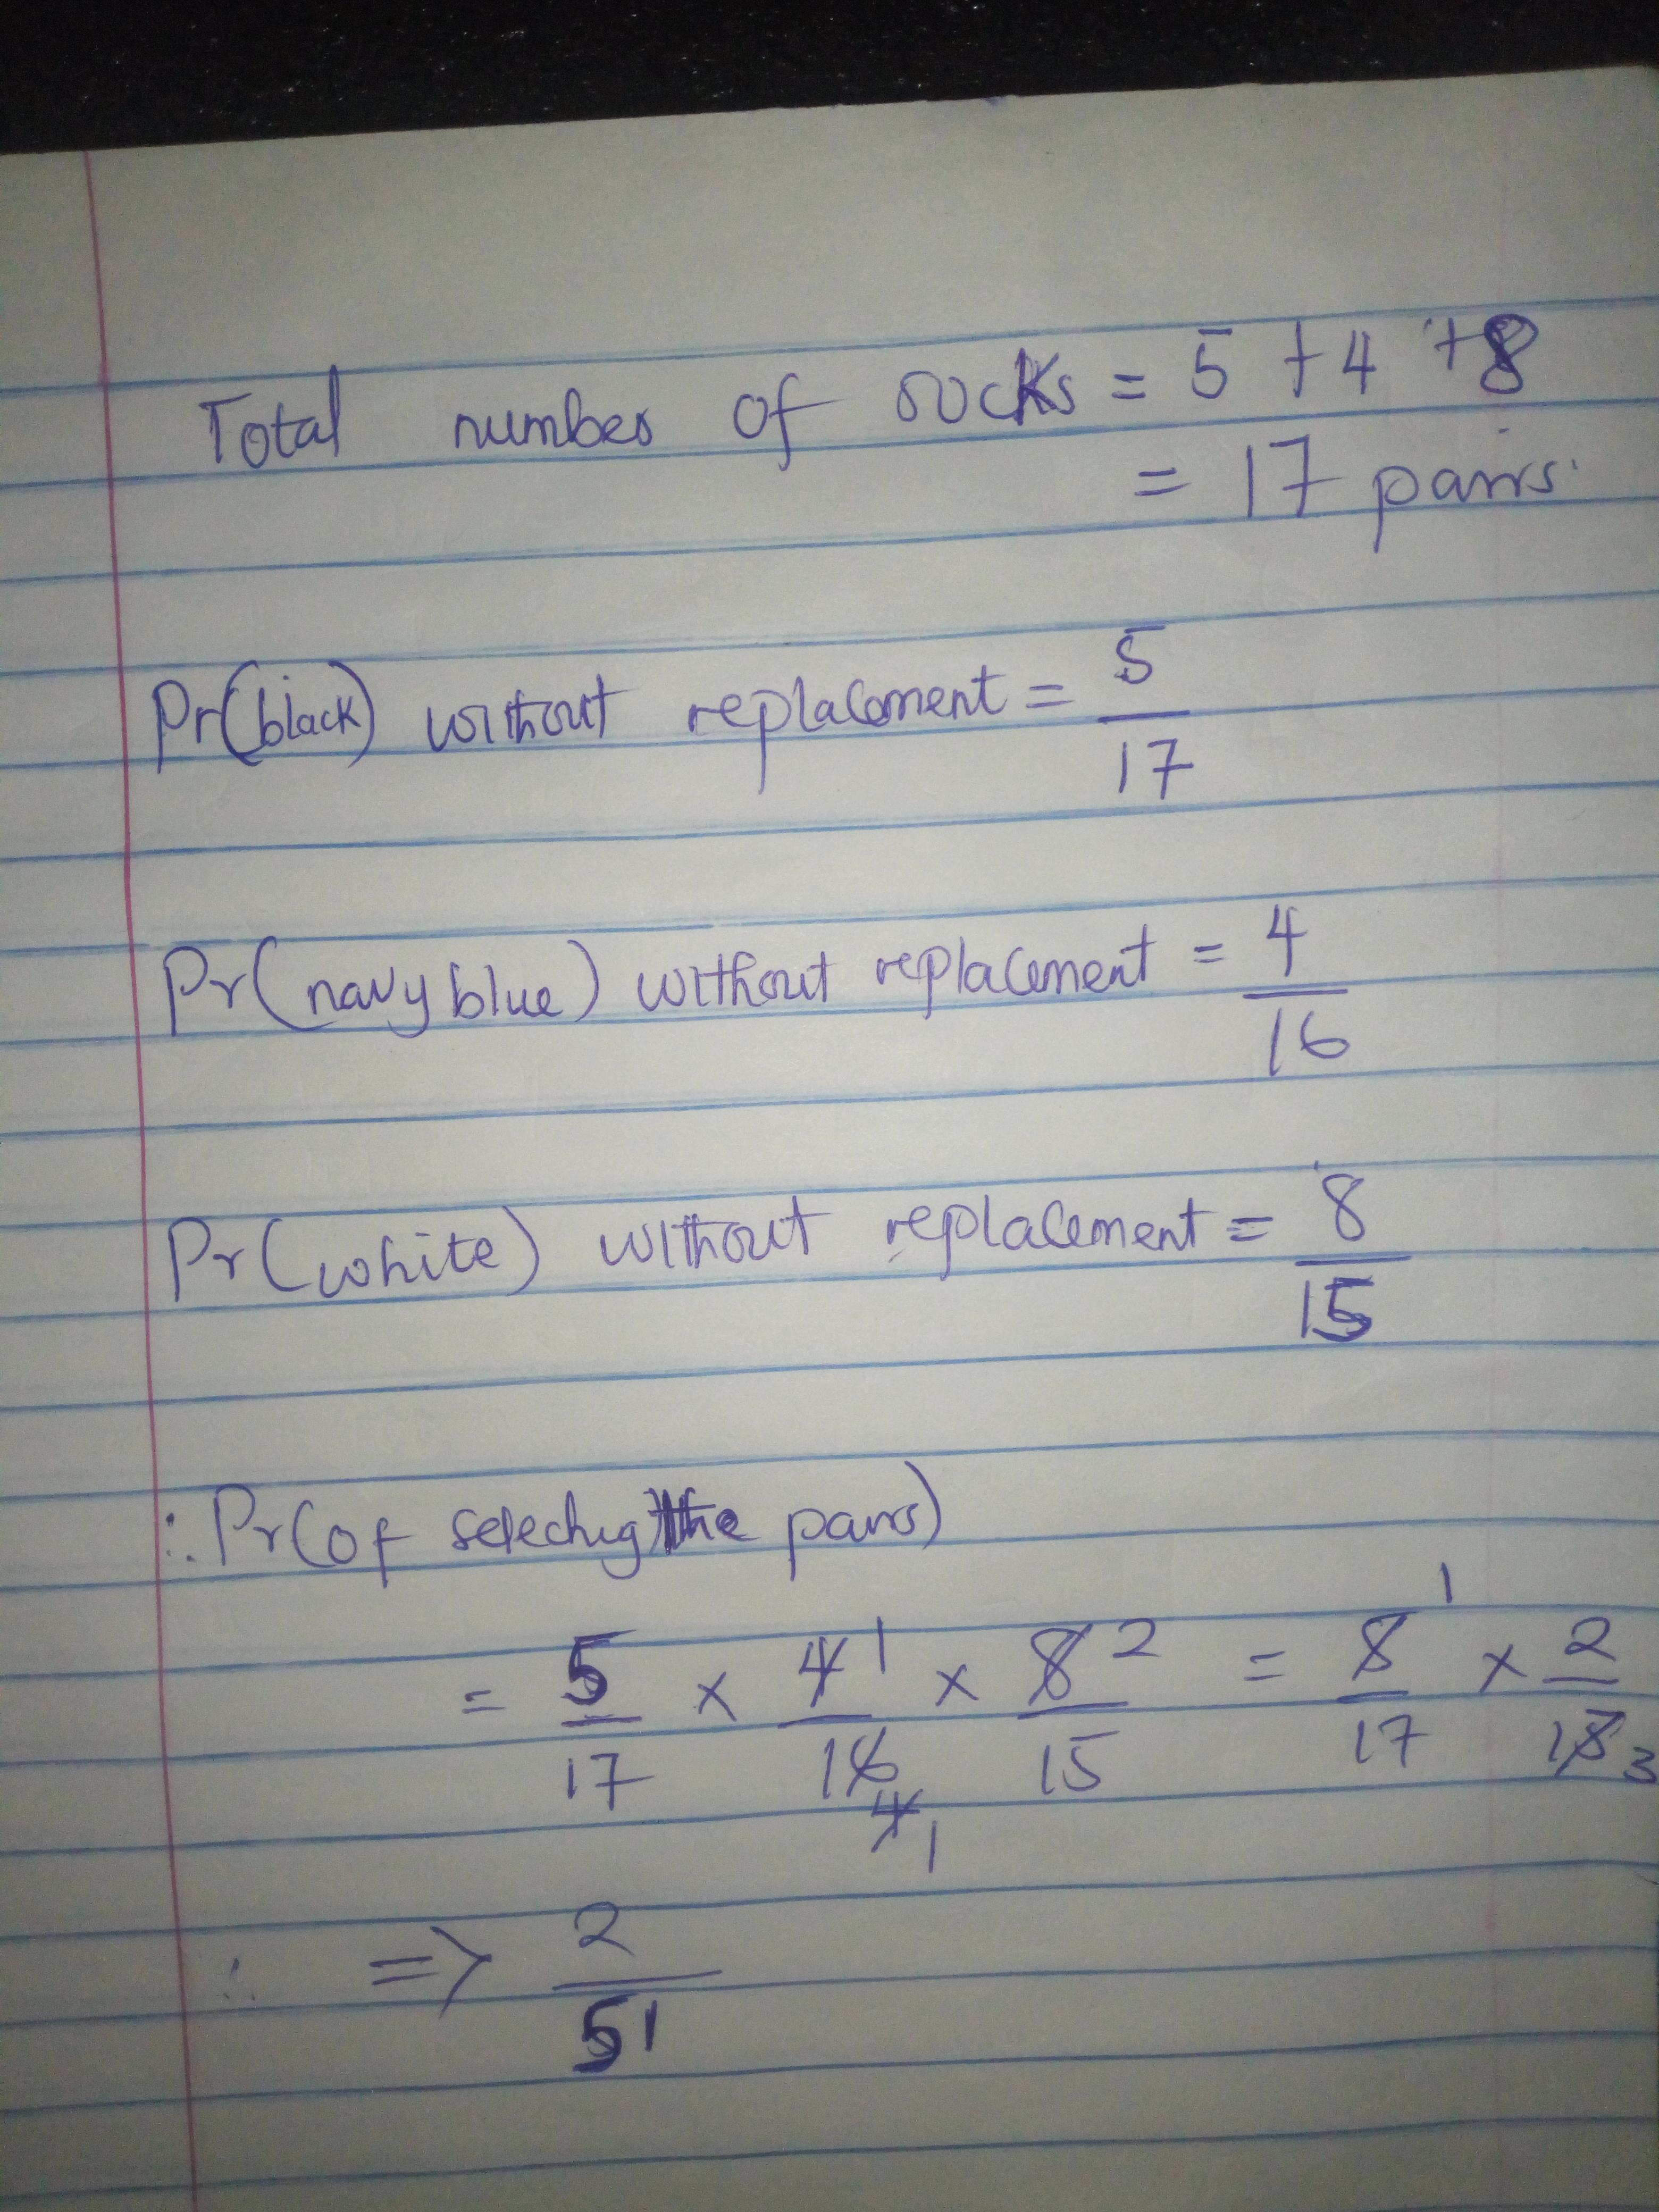 Total number of socks = 5 + 4 + 8
= 17 pairs.
Pr(black) without replacement = 5/17
Pr(navy blue) without replacement = 4/16
Pr(white) without replacement = 8/15
∴ Pr(of selecting the pairs)
= 5/17 × 4/16 × 8/15 = 5/17 × 2/15
1 2 1
4 1 3
∴ => 2/51